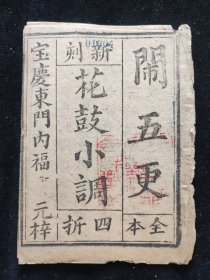 鬧五更
全本
新刻
花鼓小調
四折
宝慶東門内福
元梓